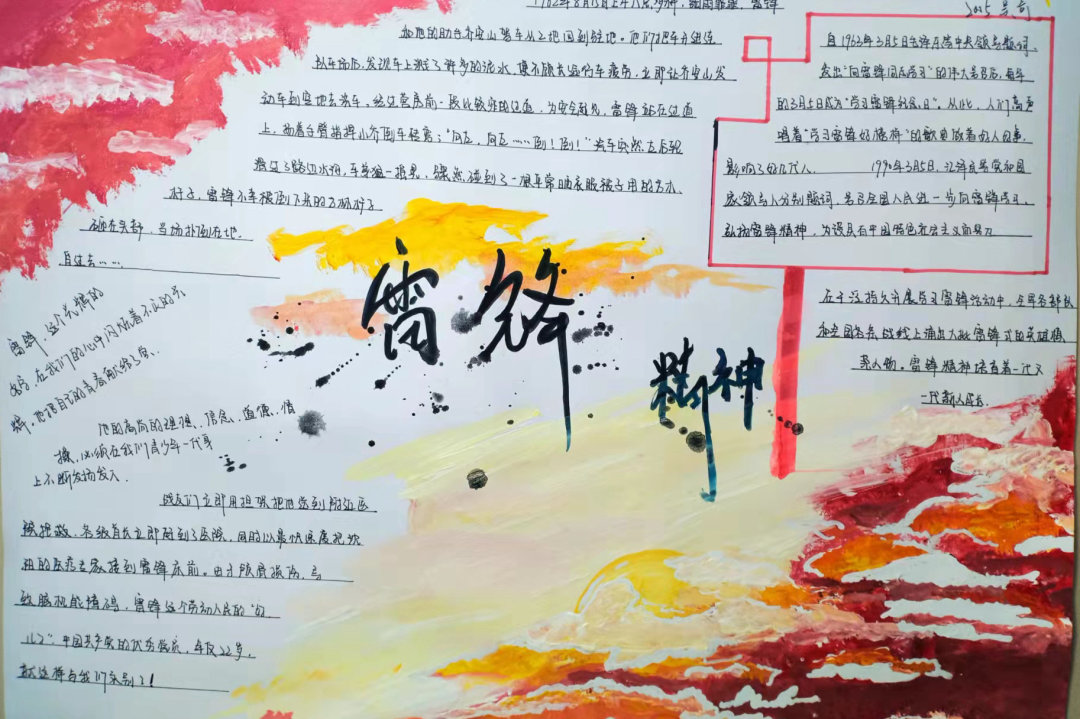 1962年8月15日上午八点多钟，细雨霏霏，雷锋
和他的助手乔安山驾车从工地回到驻地。他们把车开进连
队车场后，发现车上溅了许多的泥水，便不顾长途行车疲劳，立即让乔安山发
动车到空地去洗车。经过营房前一段比较窄的过道，为安全起见，雷锋站在过道
上，扬着手臂指挥小乔倒车轻喊：“向左，向左……倒！倒！”汽车突然左后轮
滑进了路边水沟，车身猛一摇晃，骤然碰到了一根平常晒衣服被子用的方木
杆子，雷锋不幸被倒下来的方木杆子
砸在头部，当场扑倒在地，
昏过去……
雷锋，这个光辉的
名字，在我们的心中闪烁着不灭的光
辉。他把自己的青春献给了党、
他的高尚的理想、信念、道德、情
操，必须在我们青少年一代身
上不断发扬发入．
战友们立即用担架把他送到附近医
院抢救，各级首长立即赶到了医院，同时以最快速度把沈
阳的医疗专家接到雷锋床前。由于颅骨损伤，导
致脑机能障碍，雷锋这个劳动人民的“好
儿子”，中国共产党的优秀党员，年仅22岁，
就这样与我们永别了！
雷锋
精神
自1963年3月5日毛泽东
发出“向雷锋同志学习”的伟大号召后，每年
的3月5日成为“学习雷锋纪念日”，从此，人们高声
唱着“学习雷锋好榜样”的歌曲做着好人好事，
影响了好几代人． 1990年3月5日，江泽民等党和国
家领导人分别题词，号召全国人民进一步向雷锋学习，
弘扬雷锋精神，为建设有中国特色社会主义而努力
在于深持久开展学习雷锋活动中，全军各部队
和全国各条战线上涌出大批雷锋式的英雄模
范人物。雷锋精神培育着一代又
一代新人成长